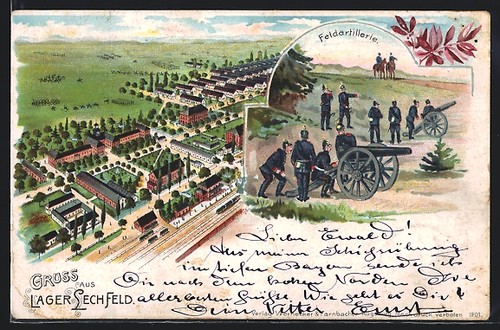 Feldartillerie.
GRUSS
AUS
LAGER LECHFELD.
Lieber Ewald!
Aus meiner Schießübung
im tiefen Bayern sende ich
Dir nach dem hohen Norden
allerbesten Grüße. Wie geht es Dir?
Dein Ernst
Verlag
verboten 1901.